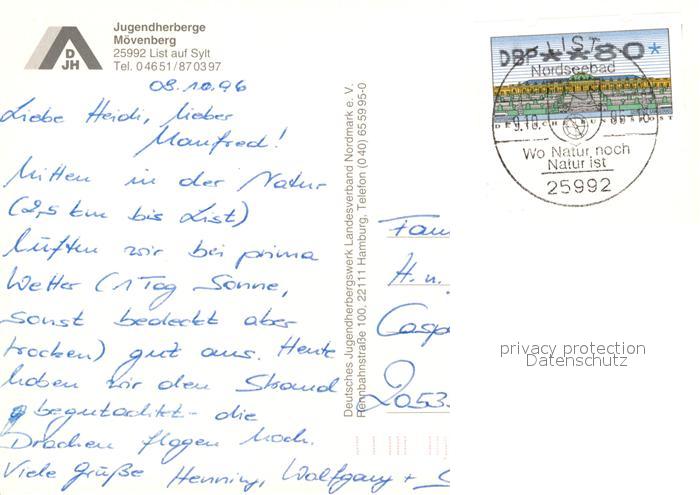 Jugendherberge
Mövenberg
25992 List auf Sylt
Tel. 0 46 51 / 87 03 97
D
JH
08.10.96
Liebe Heidi, lieber
Manfred!
Mitten in der Natur
(2,5 km bis List)
lüften wir bei prima
Wetter (1 Tag Sonne,
sonst bedeckt aber
trocken) gut aus. Heute
haben wir den Strand
begutachtet - die
Drachen flogen hoch.
Viele Grüße Henning, Wolfgang +
Deutsches Jugendherbergswerk Landesverband Nordmark e. V.
Rennbahnstraße 100, 22111 Hamburg, Telefon (0 40) 65 59 95-0
DBP **80*
DEUTSCHE BUNDESPOST
LIST
Nordseebad
9.10.
Wo Natur noch
Natur ist
25992
Fam
H. u.
Casp
2053
privacy protection
Datenschutz